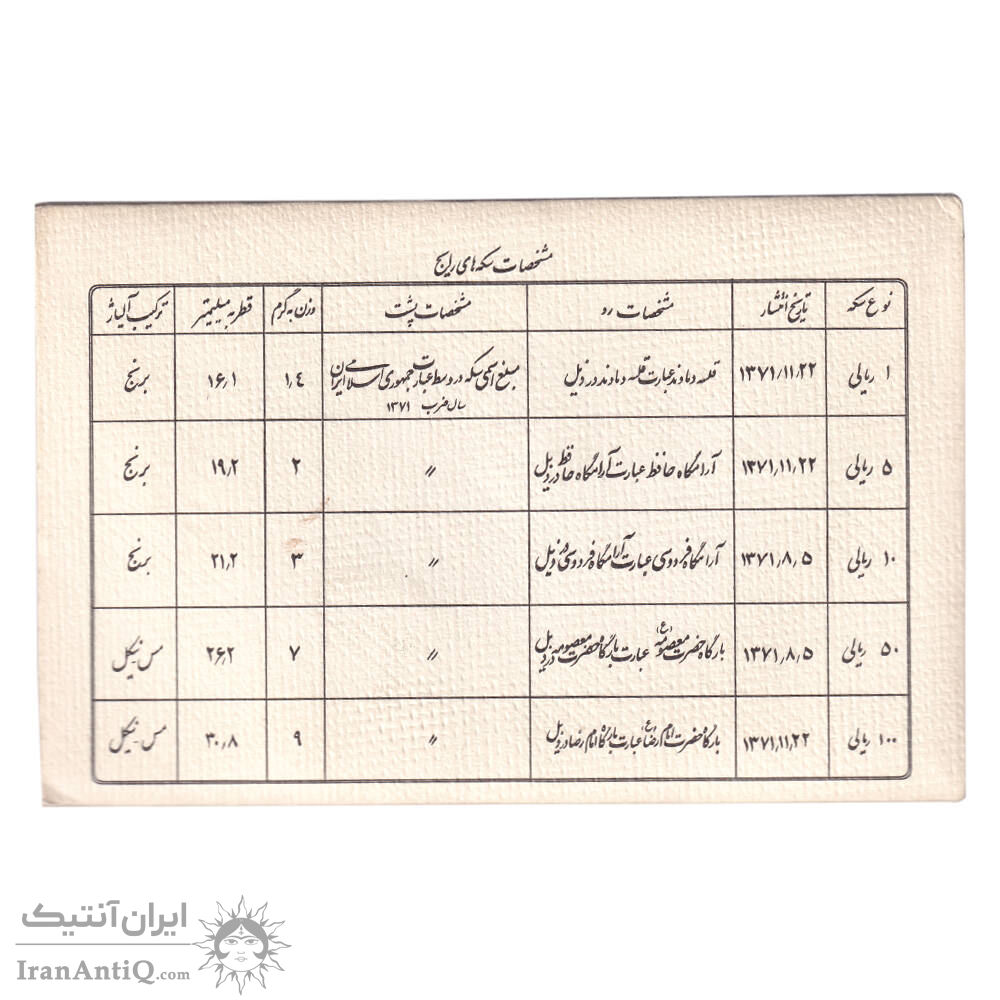 مشخصات سکه های رایج
نوع سکه تاریخ انتشار مشخصات رو مشخصات پشت وزن به گرم قطر به میلیمتر ترکیب آلیاژ
۱ ریالی ۱۳۷۱٫۱۱٫۲۲ قله دماوند عبارت قله دماوند در ذیل مبلغ اسمی سکه در وسط عبارت جمهوری اسلامی ایران ۱٫۴ ۱۶٫۱ برنج
سال ضرب ۱۳۷۱
۵ ریالی ۱۳۷۱٫۱۱٫۲۲ آرامگاه حافظ عبارت آرامگاه حافظ در ذیل 〃 ۲ ۱۹٫۲ برنج
۱۰ ریالی ۱۳۷۱٫۸٫۵ آرامگاه فردوسی عبارت آرامگاه فردوسی در ذیل 〃 ۳ ۲۱٫۲ برنج
۵۰ ریالی ۱۳۷۱٫۸٫۵ بارگاه حضرت معصومه (ع) عبارت بارگاه حضرت معصومه در ذیل 〃 ۷ ۲۶٫۲ مس نیکل
۱۰۰ ریالی ۱۳۷۱٫۱۱٫۲۲ بارگاه حضرت امام رضا (ع) عبارت بارگاه امام رضا در ذیل 〃 ۹ ۳۰٫۸ مس - نیکل
ایران آنتیک
IranAntiQ.com